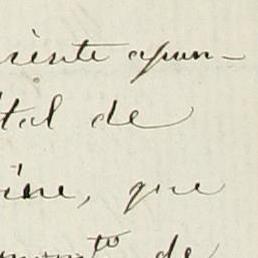 riente apun-
tal de
ine, que
to de